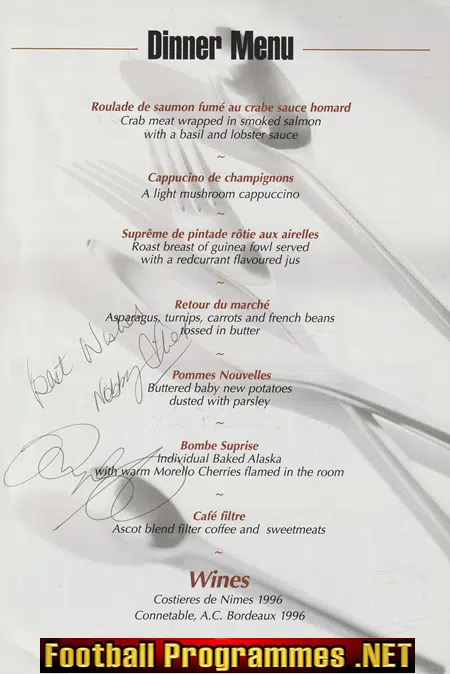 Dinner Menu
Roulade de saumon fumé au crabe sauce homard
Crab meat wrapped in smoked salmon
with a basil and lobster sauce
~
Cappucino de champignons
A light mushroom cappuccino
~
Suprême de pintade rôtie aux airelles
Roast breast of guinea fowl served
with a redcurrant flavoured jus
~
Retour du marché
Asparagus, turnips, carrots and french beans
tossed in butter
~
Best Wishes
Nobby
Pommes Nouvelles
Buttered baby new potatoes
dusted with parsley
~
Bombe Suprise
Individual Baked Alaska
with warm Morello Cherries flamed in the room
~
Café filtre
Ascot blend filter coffee and sweetmeats
~
Wines
Costieres de Nimes 1996
Connetable, A.C. Bordeaux 1996
Football Programmes .NET